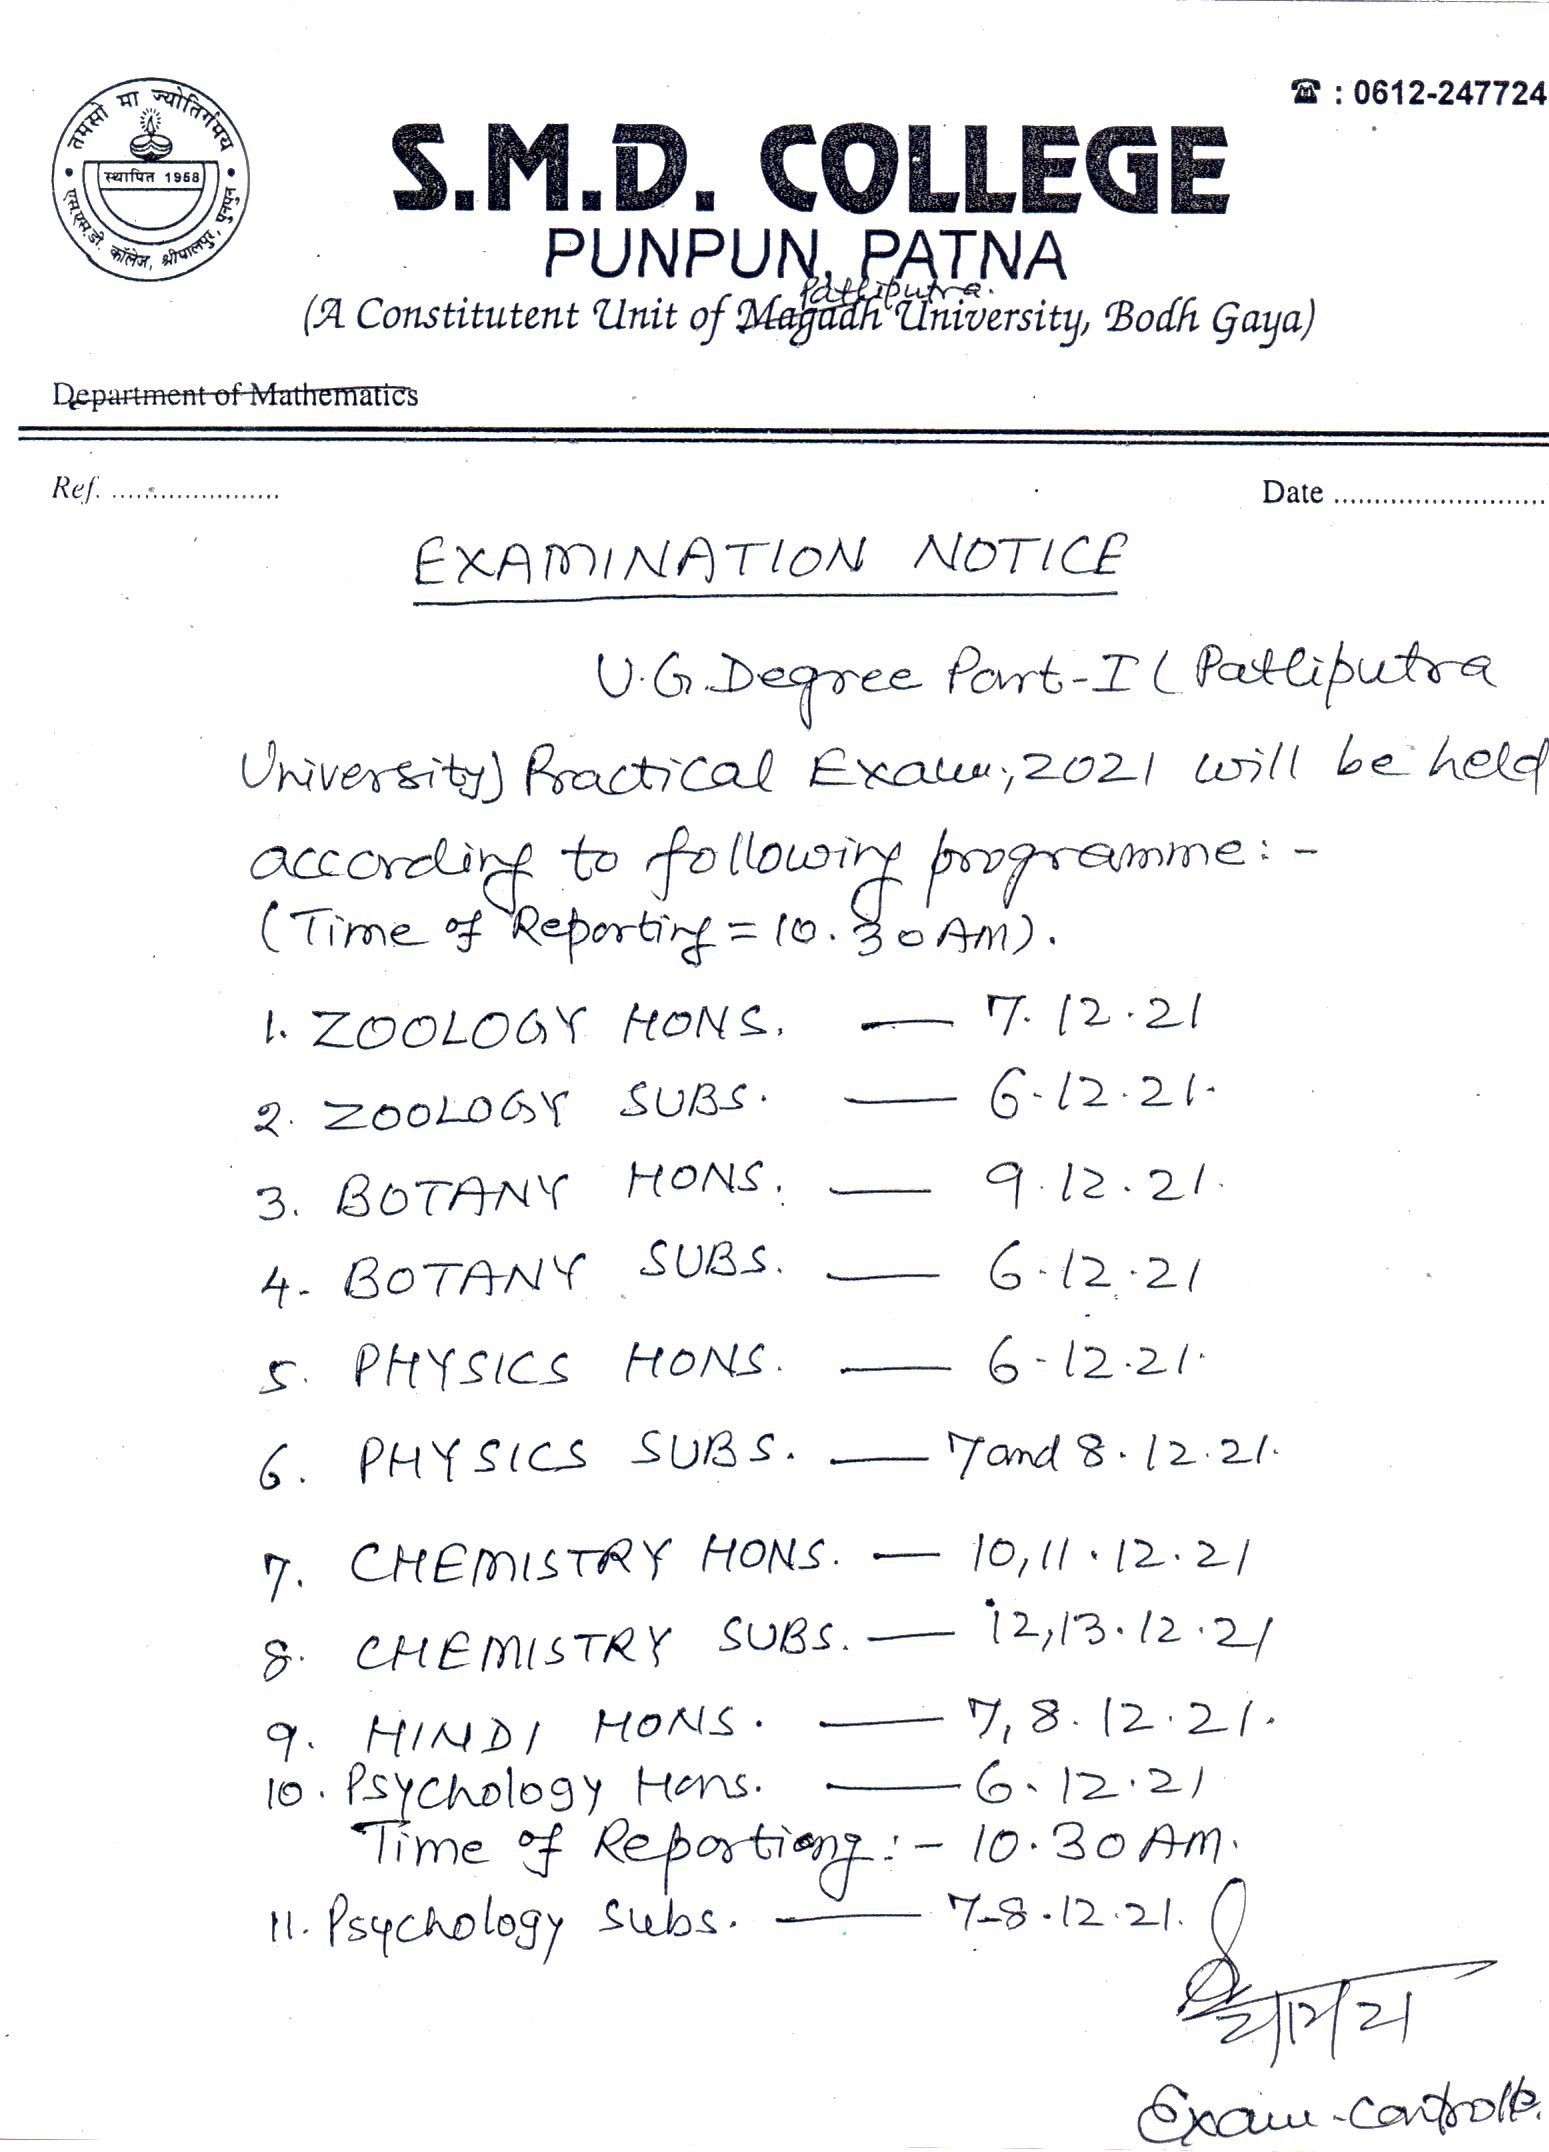 तमसो मा ज्योतिर्गमय
स्थापित 1958
एस.एम.डी. कॉलेज, श्रीपालपुर, पुनपुन
☎ : 0612-247724
S.M.D. COLLEGE
PUNPUN, PATNA
Patliputra.
(A Constitutent Unit of Magadh University, Bodh Gaya)
Department of Mathematics
Ref. .....................
Date ..........................
EXAMINATION NOTICE
U.G. Degree Part-I (Patliputra
University) Practical Exam, 2021 will be held
according to following programme:-
(Time of Reporting = 10.30 AM).
1. ZOOLOGY HONS. — 7.12.21
2. ZOOLOGY SUBS. — 6.12.21.
3. BOTANY HONS. — 9.12.21.
4. BOTANY SUBS. — 6.12.21
5. PHYSICS HONS. — 6-12.21.
6. PHYSICS SUBS. — 7 and 8.12.21.
7. CHEMISTRY HONS. — 10,11.12.21
8. CHEMISTRY SUBS. — 12,13.12.21
9. HINDI HONS. — 7,8.12.21.
10. Psychology Hons. — 6.12.21
Time of Reportiong:- 10.30 AM.
11. Psychology Subs. — 7-8.12.21.
21
Exam-controlle.